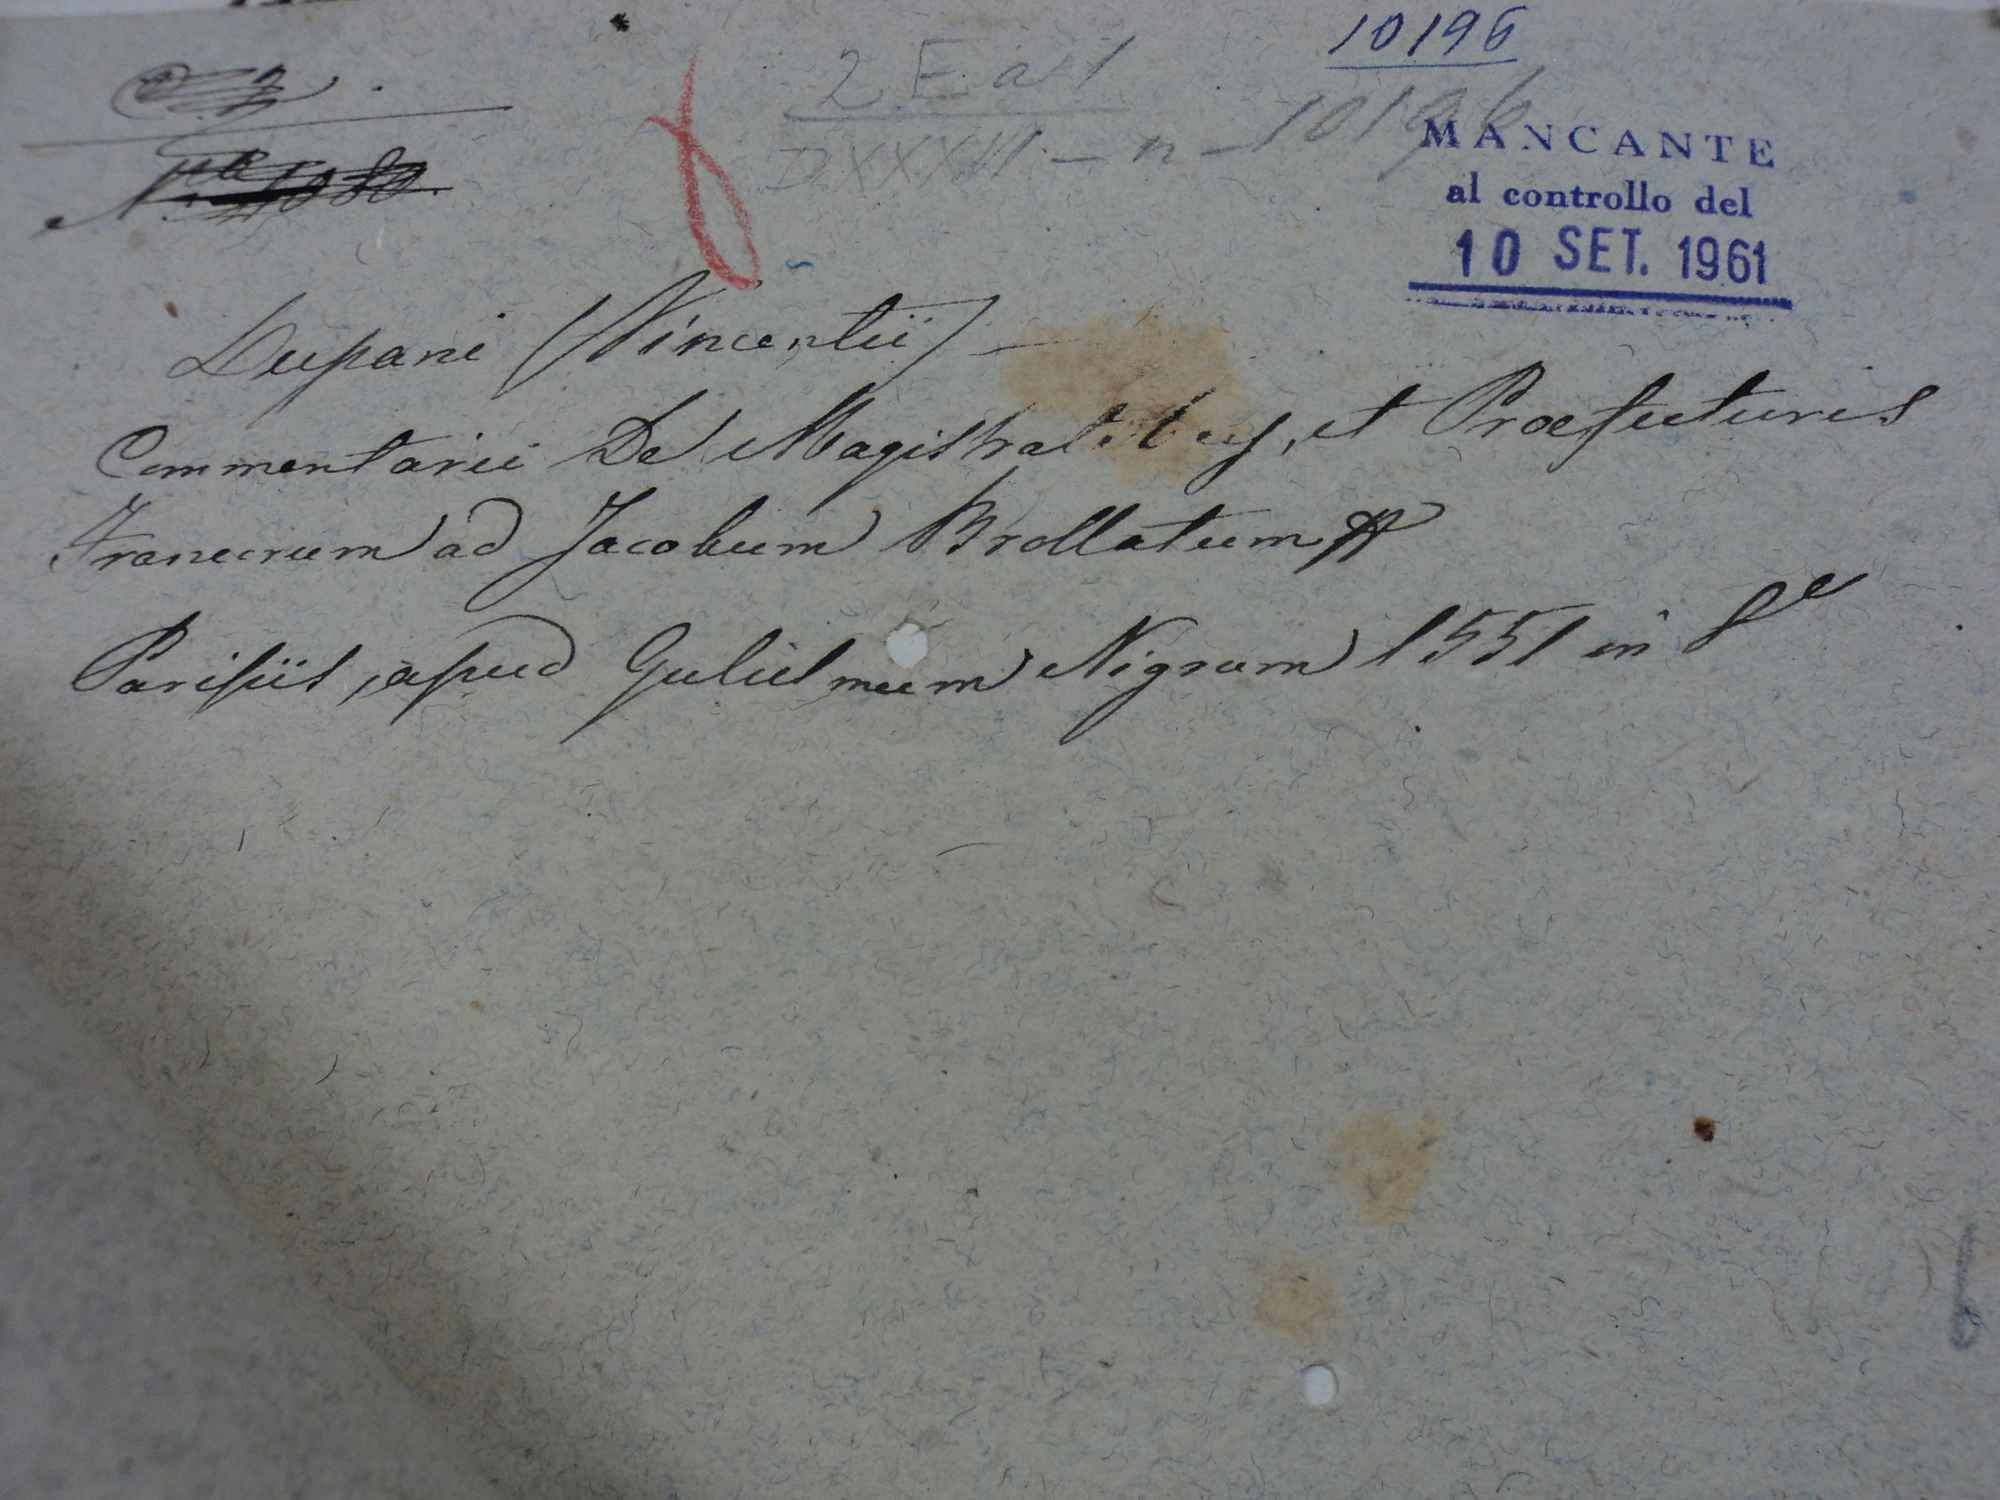 10196
2 E a 1
DXXXVI - n - 10196
MANCANTE
al controllo del
10 SET. 1961
Lupani (Vincentii)
Commentarii De Magistratibus, et Praefecturis
Francorum ad Jacobum Brollatum
Parisiis, apud Gulielmum Nigrum 1551 in 8°